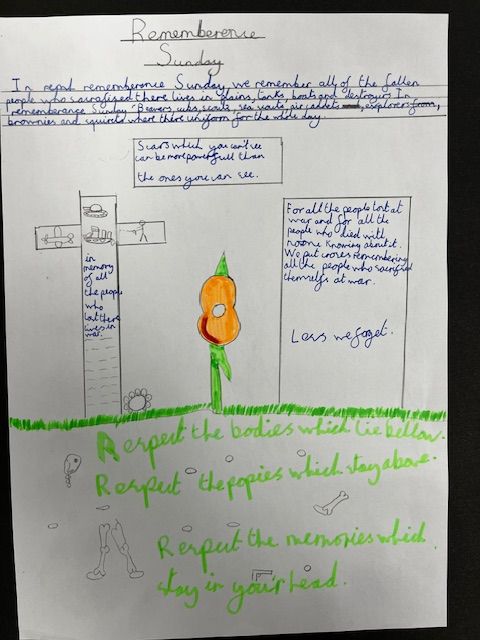 Rememberence
Sunday
In repat rememberence Sunday we remember all of the fallen
people who sacrafised there lives in plains, tanks, boats and destroyers. In
rememberence Sunday Beavers, cubs, scouts, sea scouts, air cadets, explorers from,
brownies and squirels where there uniform for the whole day.
Scars which you can't see
can be more powerfull than
the ones you can see.
in
memory
of all
the people
who
lost there
lives in
war.
For all the people lost at
war and for all the
people who died with
noone knowing about it.
We put crosses remembering
all the people who sacrifised
themselfs at war.
Less we foget.
Respect the bodies which lie bellow.
Respect the popies which stay above.
Respect the memories which
stay in your head.